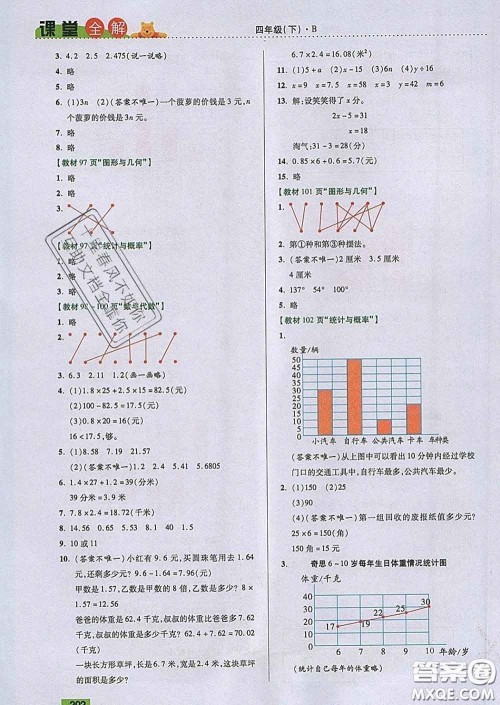 课堂全解
四年级(下)·B
3. 4.2 2.5 2.475(说一说略)
4. 略
5. 略
6. (1)3n (2)(答案不唯一)一个菠萝的价钱是3元,n
个菠萝的价钱是3n元。
7. 略
8. 略
【教材97页“图形与几何”】
1. 略
2. 略
3.
【教材97页“统计与概率”】
1. 略
2. 略
【教材98~100页“数与代数”】
1. 略
2.
3. 6.3 2.11 1.2(画一画略)
4. (1)1.8×25+2.5×15=82.5(元)
(2)100-82.5=17.5(元)
(3)17.5-1.1=16.4(元)
16<17.5,够。
5. (1)8.58 7.19 21.57
(2)(答案不唯一)1.8+2.58=4.38(元)
6. 1.4×27+1.2=39(分米)
39分米=3.9米
7. 7.8×2.4=18.72(千克)
8. 14.08 0.65 5.53 8.1 1.5 40
9. 10或11
10. (答案不唯一)小红有9.6元,买圆珠笔用去1.64
元,还剩多少元? 9.6-1.64=7.96(元)
甲数是1.57,乙数是甲数的8倍,乙数是多少?1.57
×8=12.56
爸爸的体重是62.4千克,叔叔的体重比爸爸的体
重多7.6千克,叔叔的体重是多少?62.4+7.6=70.02
(千克)
一块长方形草坪,长6.7米,宽2.4米,这块草坪
的面积是多少?
202
6.7×2.4=16.08(米²)
11. (1)5+a (2)x-15 (3)6n (4)y÷16
12. x=9 x=7.5 x=58 x=3 y=42 m=6
13. 解:设笑笑得了x分。
2x-5=31
x=18
淘气:31-3=28(分)
14. 0.85×6+0.6=5.7(元)
【教材101页“图形与几何”】
1.
2. 第①种和第③种摆法。
3. (答案不唯一)2厘米 3.5厘米
4厘米
4. 137° 54° 100°
【教材102页“统计与概率”】
1.
数量/辆
60
50
40
30
20
10
0
小汽车 自行车 公共汽车 卡车 车种类
(答案不唯一)从上图中可以看出10分钟内经过学校
门口的交通工具中,自行车最多,公共汽车最少。
2. (1)150 (2)25
(3)90
(4)(答案不唯一)第一组回收的废报纸值多少元?
25×6=150(角)
150角=15元
3. 奇思6~10岁每年生日体重情况统计图
体重/千克
40
30
20
10
0
17
19
22
25
30
6 7 8 9 10 年龄/岁
(统计自己每年的体重略)
答案圈
MXQE.COM